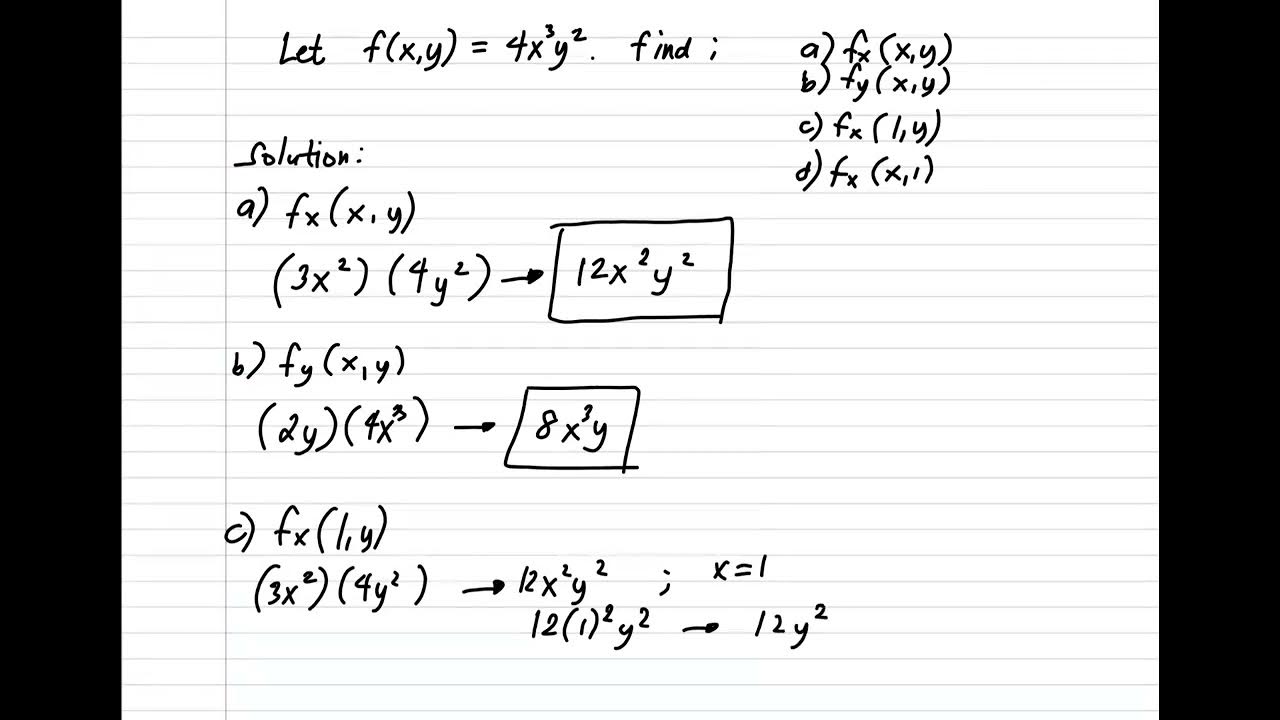 Let f(x,y) = 4x³y². find ; a) fx(x,y)
b) fy(x,y)
c) fx(1,y)
d) fx(x,1)
Solution:
a) fx(x,y)
(3x²)(4y²) → 12x²y²
b) fy(x,y)
(2y)(4x³) → 8x³y
c) fx(1,y)
(3x²)(4y²) → 12x²y² ; x=1
12(1)²y² → 12y²